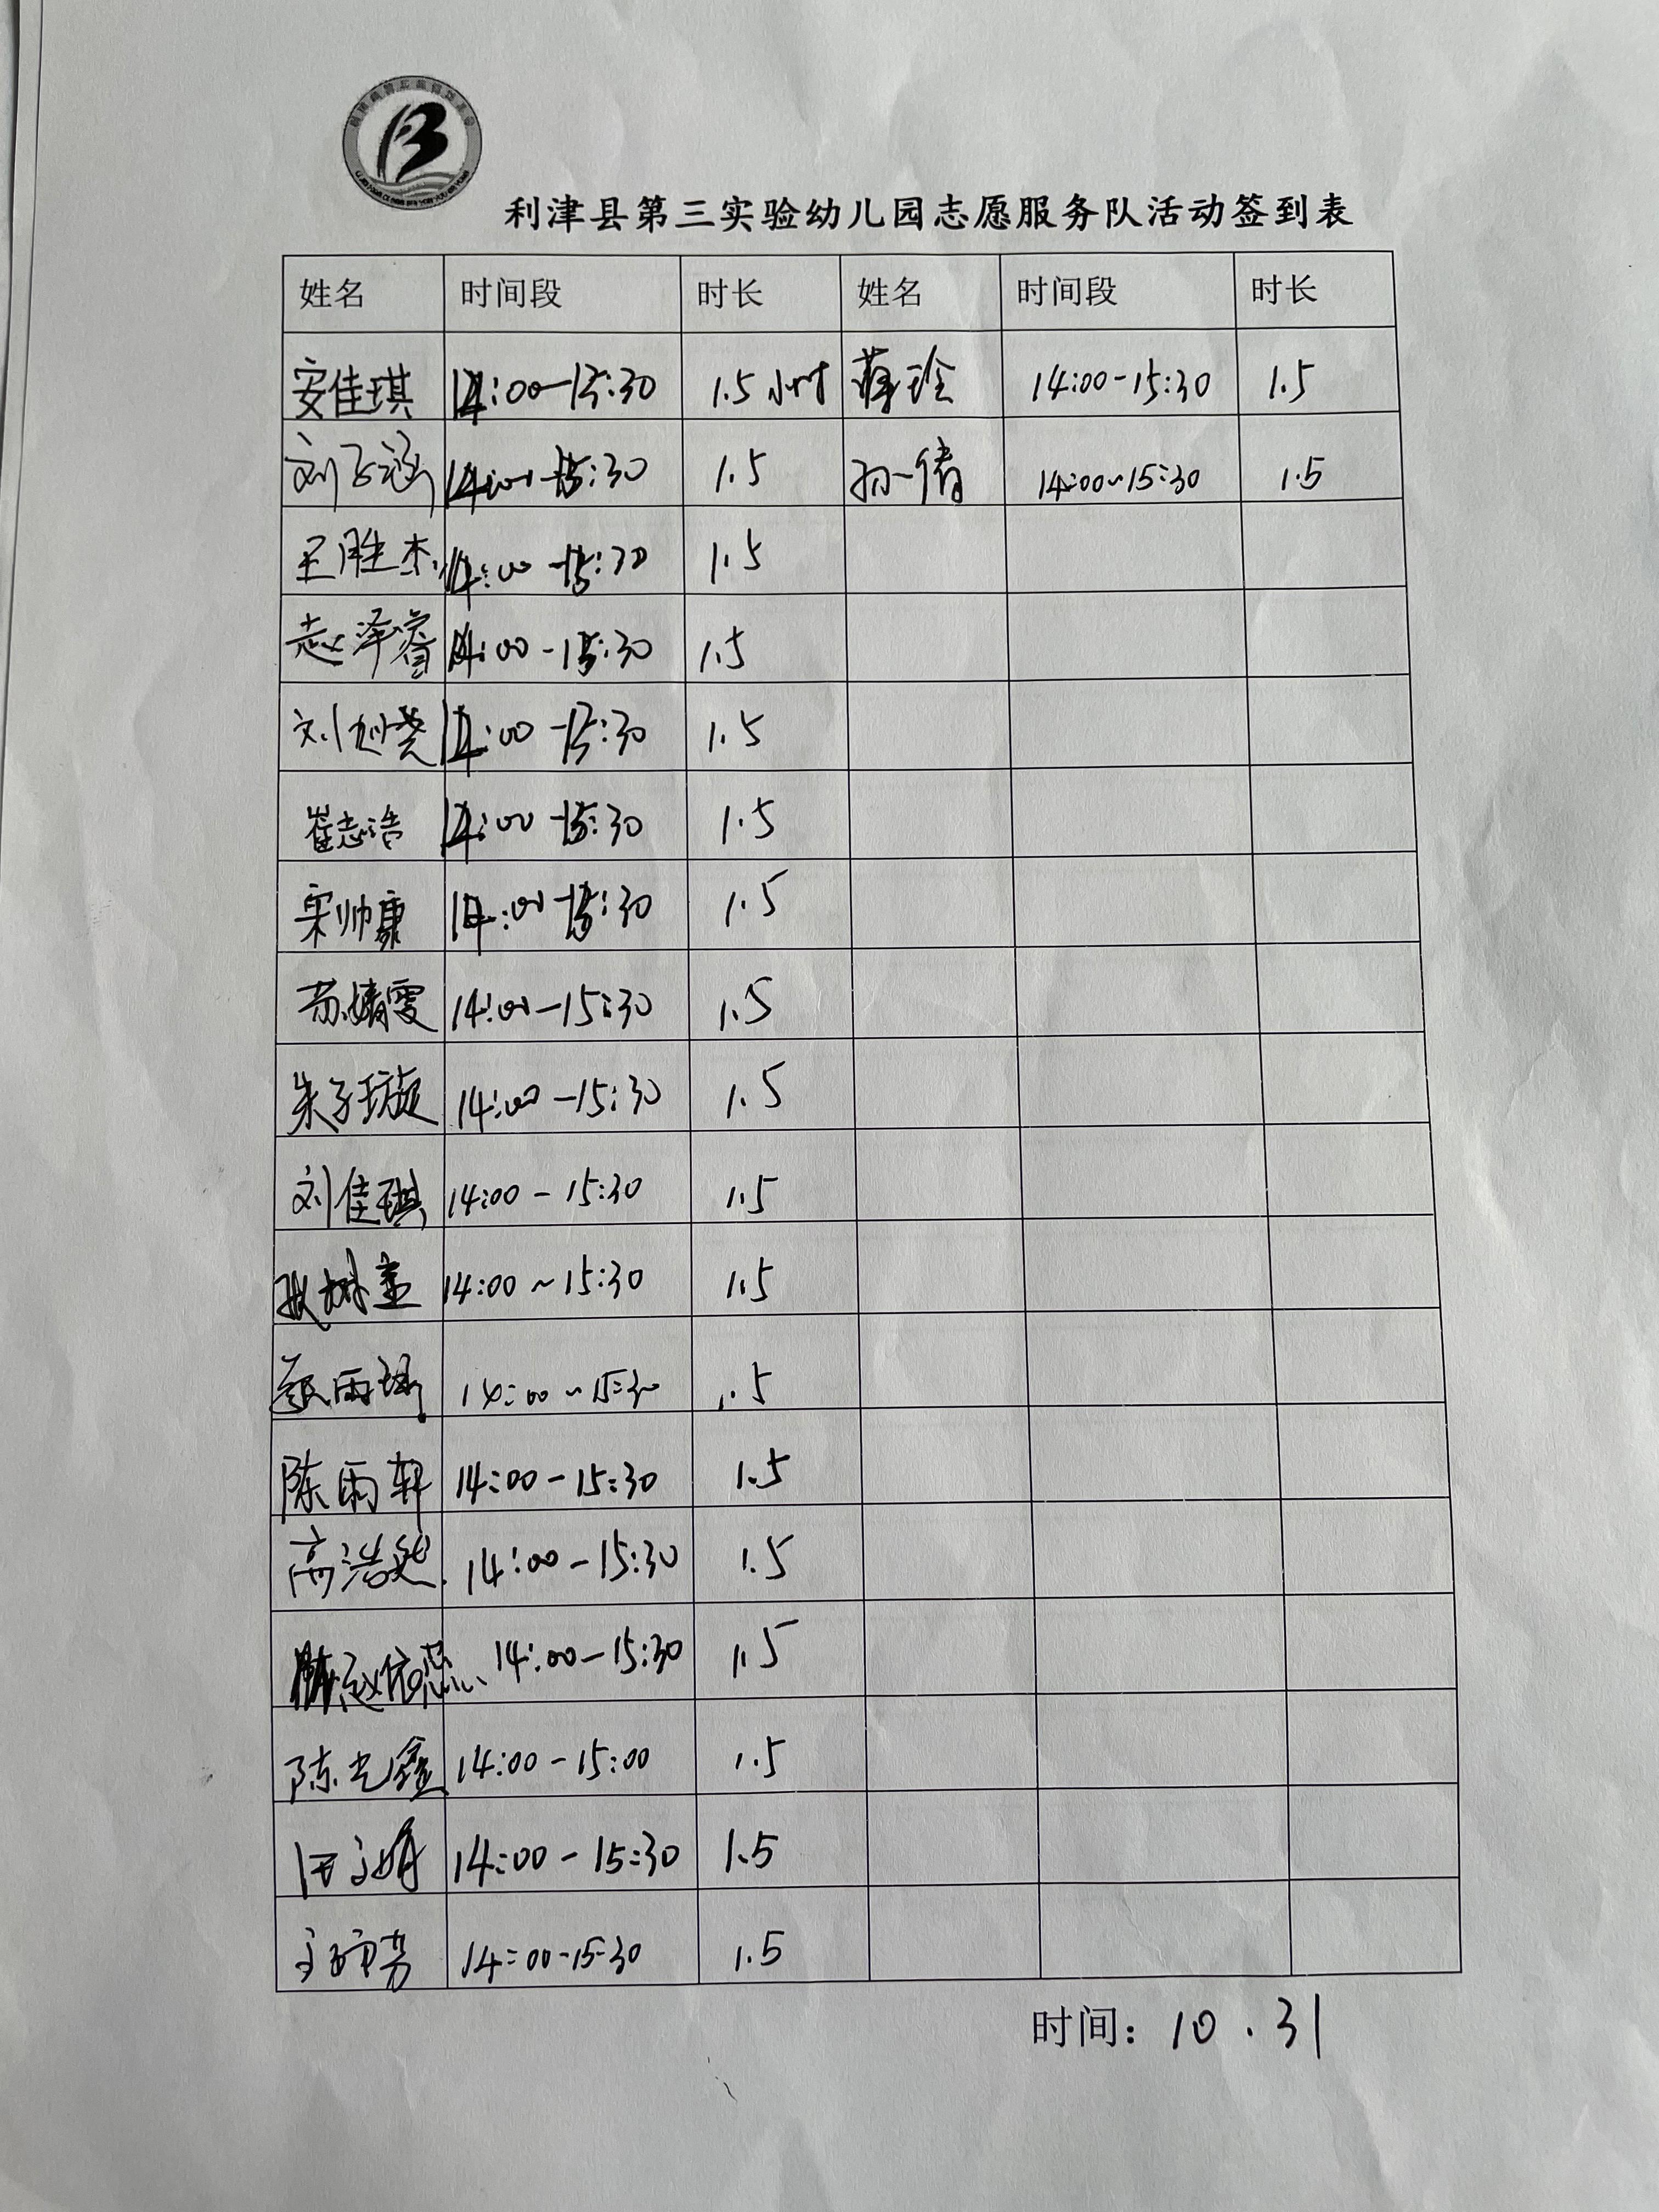 利津县第三实验幼儿园志愿服务队活动签到表
姓名 时间段 时长 姓名 时间段 时长
安佳琪 14:00-15:30 1.5小时 薛玲 14:00-15:30 1.5
刘子涵 14:00-15:30 1.5 孙倩 14:00~15:30 1.5
王胜杰 14:00-15:30 1.5
赵泽睿 14:00-15:30 1.5
刘 14:00-15:30 1.5
崔志浩 14:00-15:30 1.5
宋帅康 14:00-15:30 1.5
苏婧雯 14:00-15:30 1.5
朱子璇 14:00-15:30 1.5
刘佳琪 14:00-15:30 1.5
14:00~15:30 1.5
14:00~15:30 1.5
陈雨轩 14:00-15:30 1.5
高浩然 14:00-15:30 1.5
赵依蕊 14:00-15:30 1.5
陈光鑫 14:00-15:00 1.5
14:00-15:30 1.5
14:00-15:30 1.5
时间：10.31